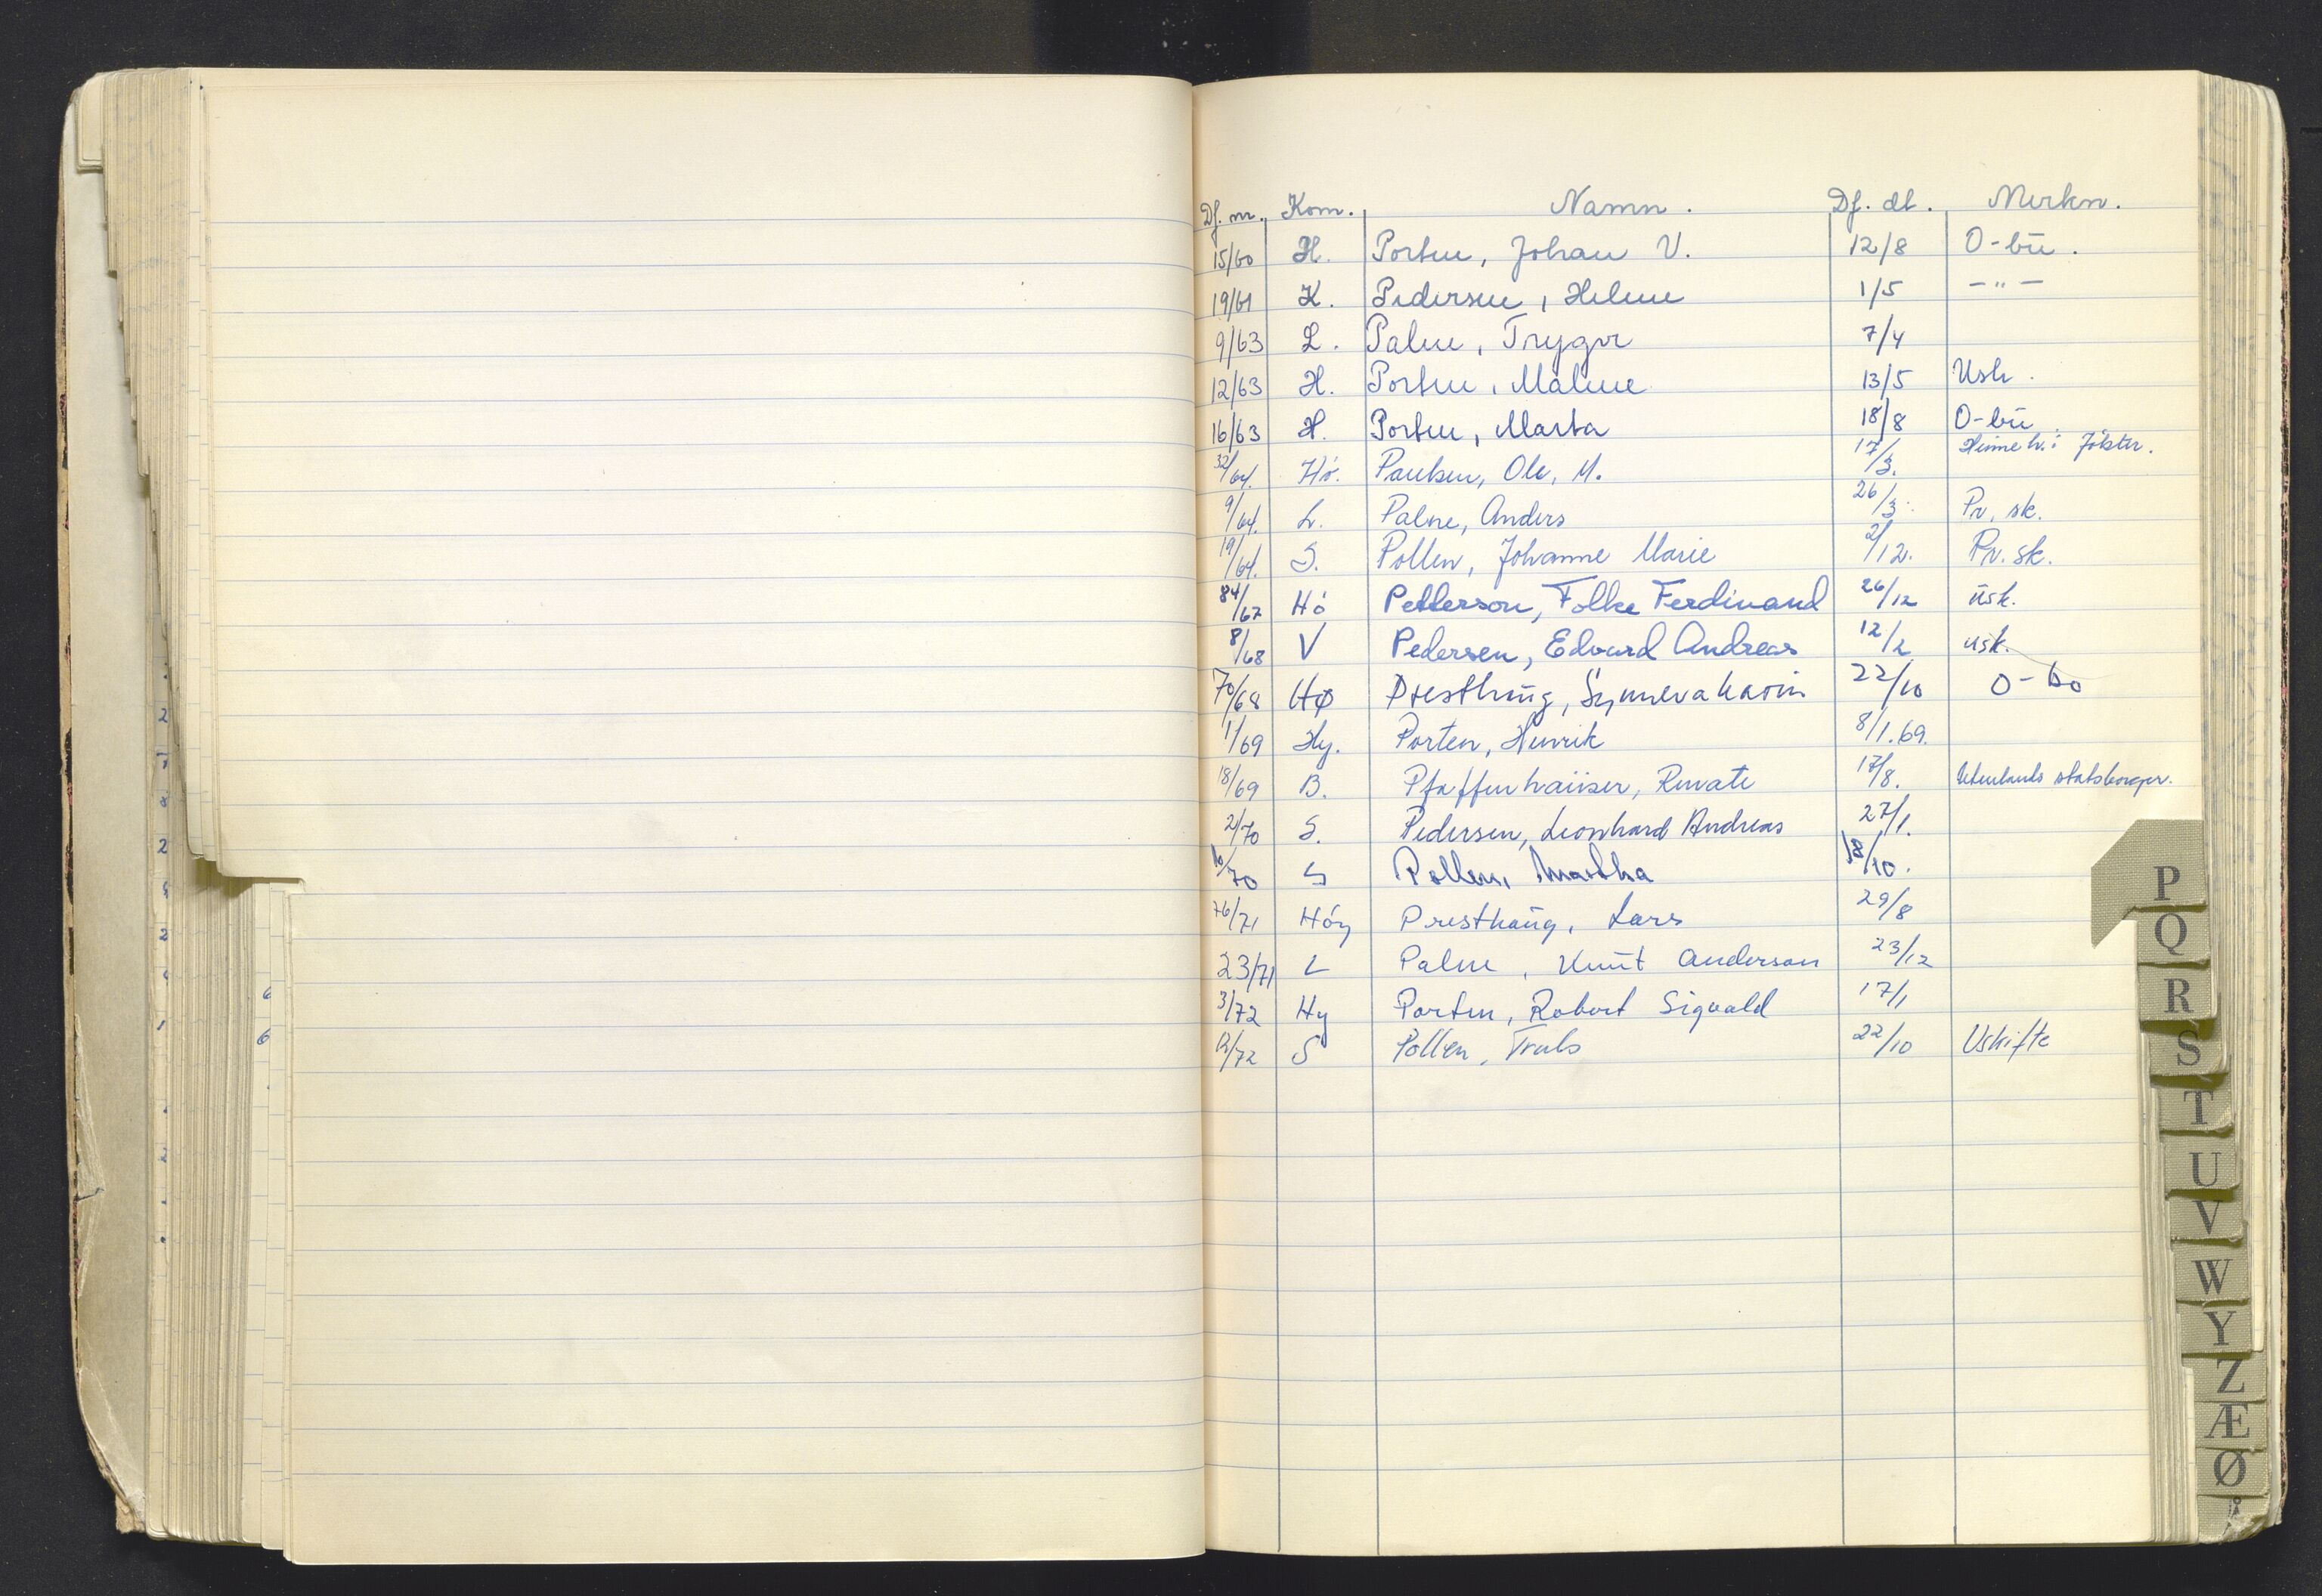 Df. nr. Kom. Namn. Df. dt. Merkn.
15/60 H. Porten, Johan V. 12/8 O-bu.
19/61 K. Pedersen, Helene 1/5 -"-
9/63 L. Palne, Trygve 7/4
12/63 H. Porten, Malene 13/5 Usk.
16/63 H. Porten, Marta 18/8 O-bu
32/64. Hö. Paulsen, Ole, M. 17/3. Heimeh. i Jölster.
9/64. L. Palne, Anders 26/3. Pr. sk.
19/64. S. Pollen, Johanne Marie 2/12. Pr. sk.
84/67 Hö Petterson, Folke Ferdinand 26/12 usk.
8/68 V Pedersen, Edvard Andreas 12/2 usk.
70/68 Hø Presthug, Synneva Karin 22/10 O-bo
1/69 Hy. Porten, Henrik 8/1.69.
18/69 B. Pfaffenhaüser, Renate 17/8. Utenlands statsborger.
2/70 S. Pedersen, Leonhard Andreas 27/1.
10/70 S Pollen, Martha 18/10.
76/71 Höy Presthaug, Lars 29/8
23/71 L Palne, Knut Anderson 23/12
3/72 Hy Porten, Robert Sigvald 17/1
12/72 S Pollen, Truls 22/10 Uskifte
P
Q
R
S
T
U
V
W
Y
Z
Æ
Ø
Å